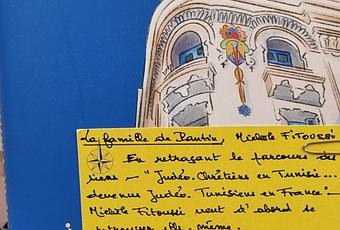 La famille de Pantin, Michèle FITOUSSI
En retraçant le parcours des
siens — "Judéo-Chrétiens en Tunisie...
devenus Judéo-Tunisiens en France" —
Michèle Fitoussi veut d'abord se
retrouver elle-même.